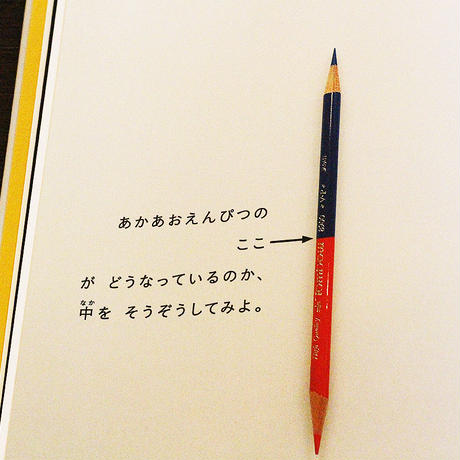 あかあおえんぴつの
ここ
が どうなっているのか、
中を そうぞうしてみよ。
なか